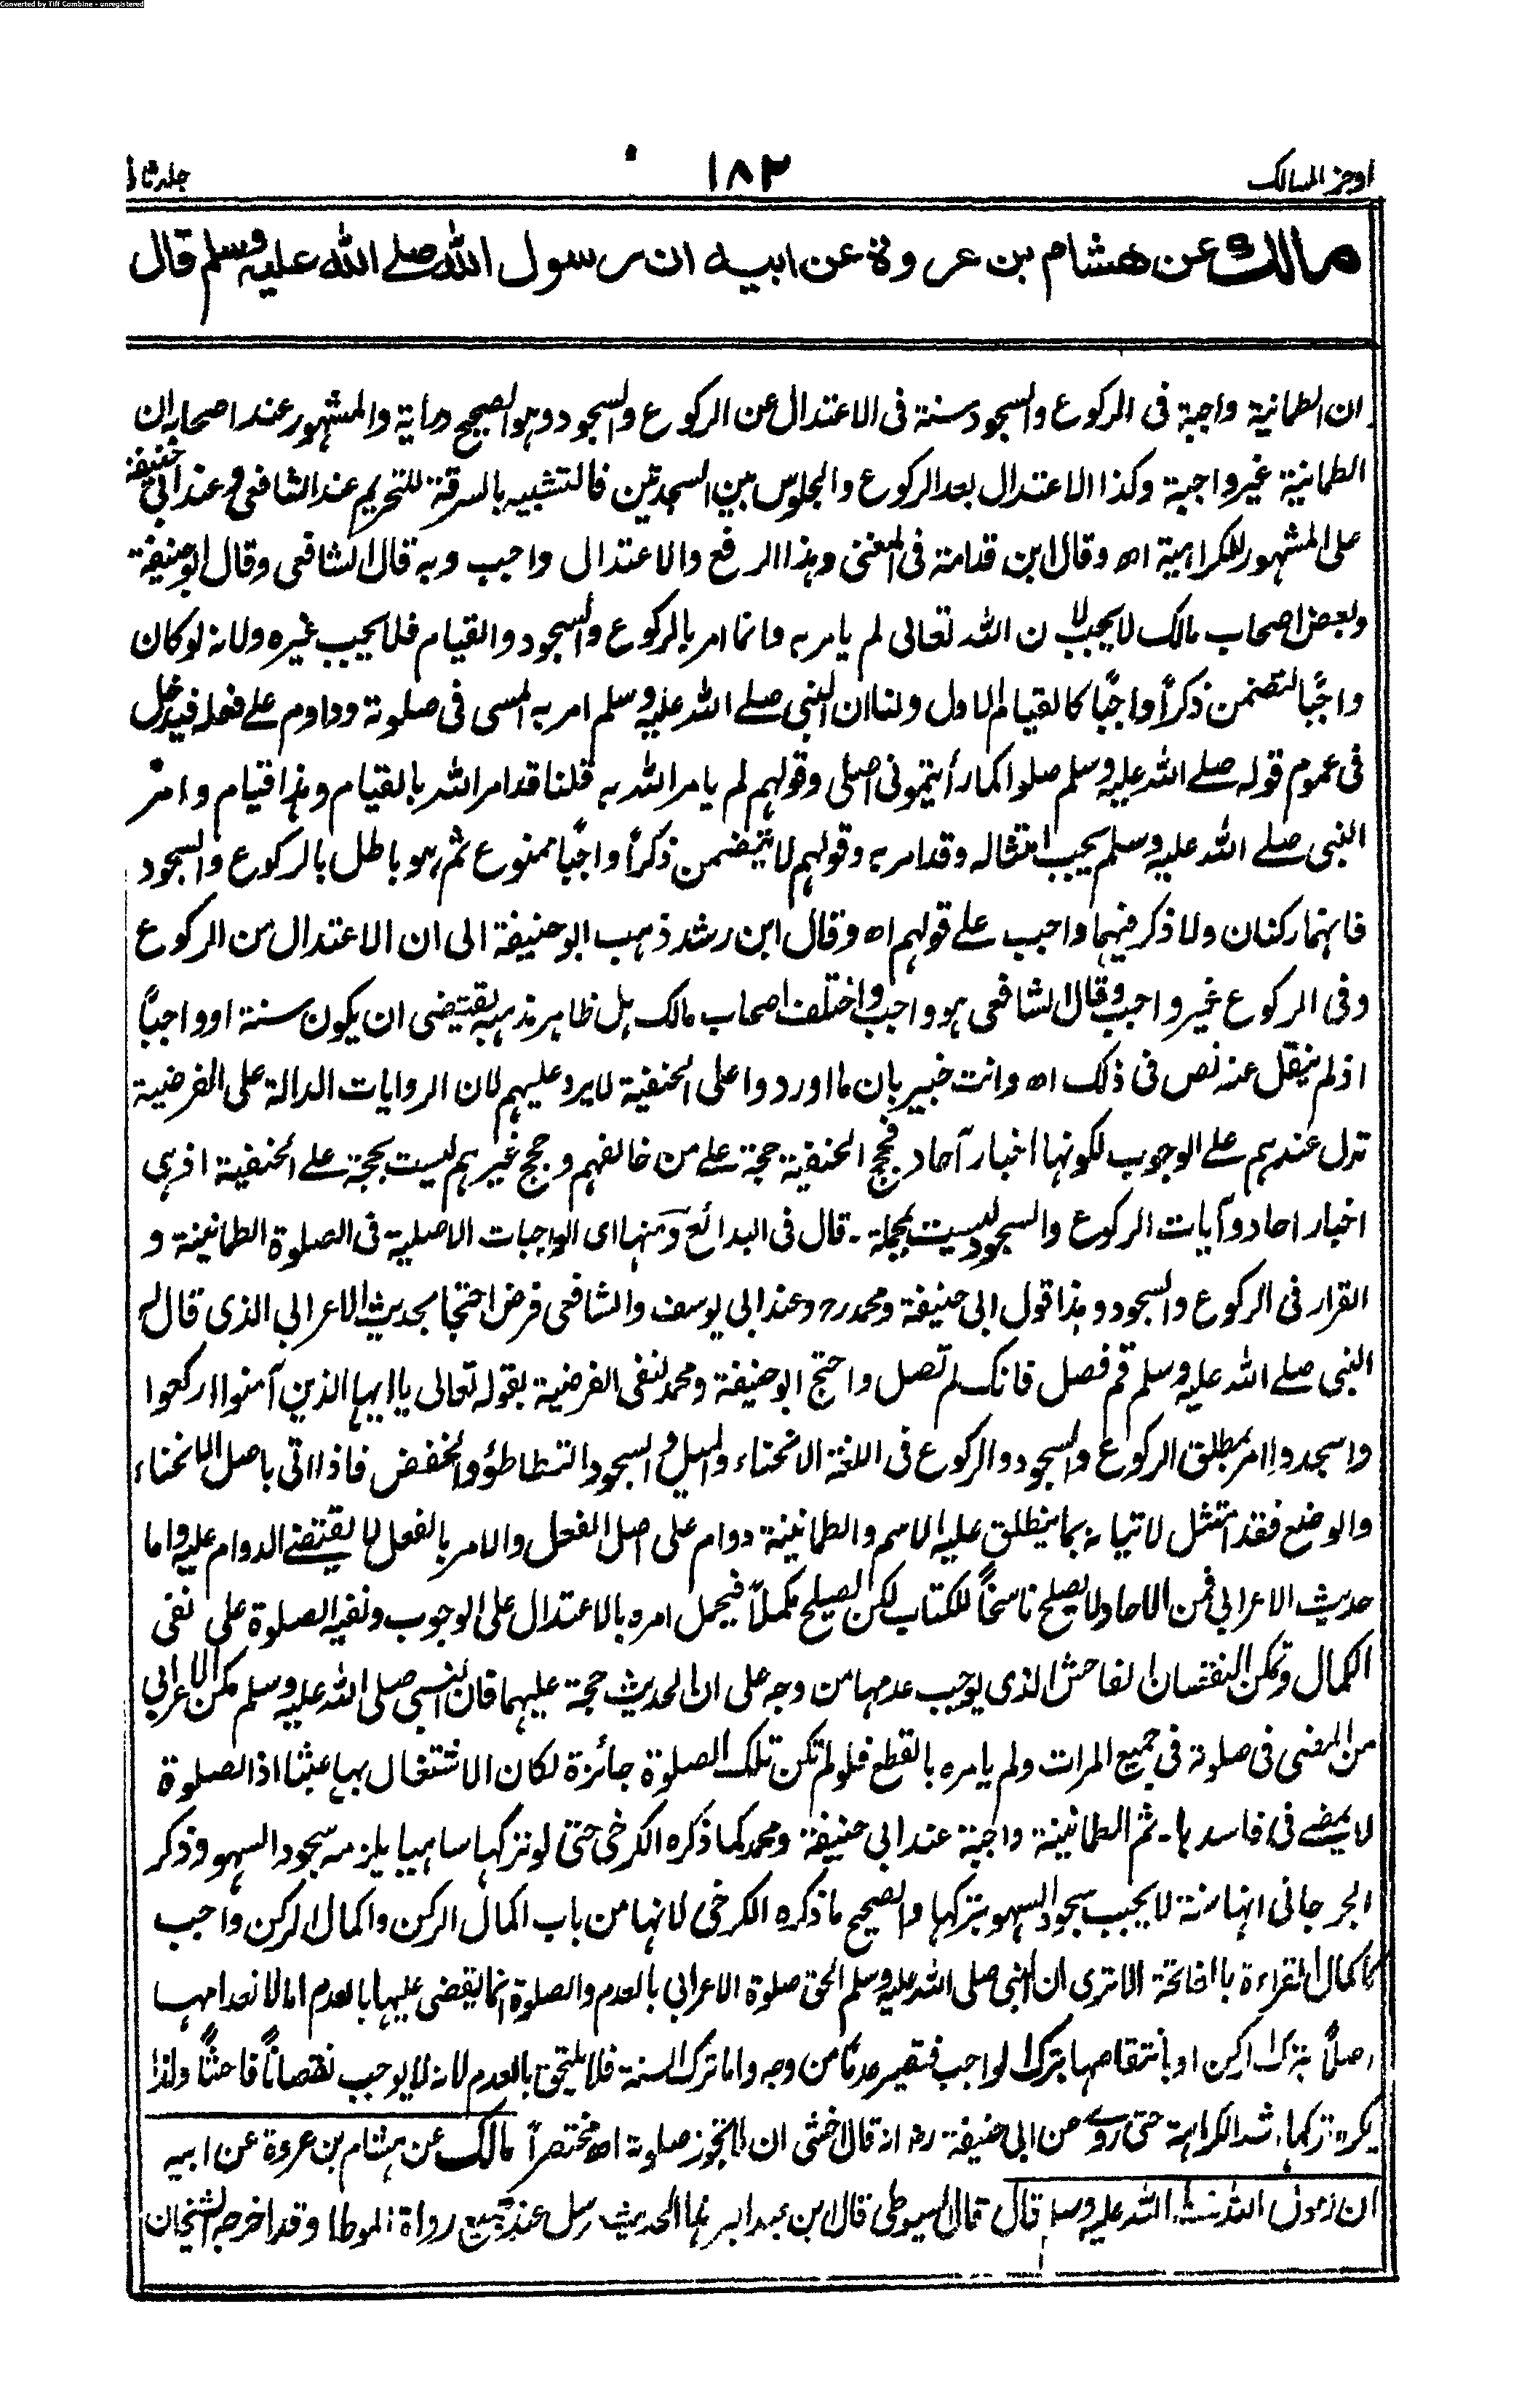 Converted by Tiff Combine - unregistered
اوجز المسالك ١٨٢ جلد ثانی
مالك عن هشام بن عروة عن ابيه ان رسول الله صلے الله عليه وسلم قال
ان الطمانية واجبة فى الركوع والسجود سنة فى الاعتدال عن الركوع والسجود وهو الصحيح دراية والمشهور عند اصحابه ان
الطمانية غير واجبة وكذا الاعتدال بعد الركوع والجلوس بين السجدتين فالتشبيه بالسرقة للتحريم عند الشافعى وعند ابى حنيفة
على المشهور للكراهية اه وقال ابن قدامة فى المغنى وهذا الرفع والاعتدال واجب وبه قال الشافعى وقال ابو حنيفة
وبعض اصحاب مالك لا يجب لان الله تعالى لم يامر به وانما امر بالركوع والسجود والقيام فلا يجب غيره ولانه لو كان
واجبًا لتضمن ذكرًا واجبًا كالقيام الاول ولنا ان النبى صلے الله عليه وسلم امر به المسى فى صلوته وداوم علے فعله فيدخل
فى عموم قوله صلے الله عليه وسلم صلوا كما رأيتمونى اصلى وقولهم لم يامر الله به قلنا قد امر الله بالقيام وهذا قيام وامر
النبى صلے الله عليه وسلم يجب امتثاله وقد امر به وقولهم لا يتضمن ذكرًا واجبًا ممنوع ثم هو باطل بالركوع والسجود
فانهما ركنان ولا ذكر فيهما واجب علے قولهم اه وقال ابن رشد ذهب ابو حنيفة الى ان الاعتدال من الركوع
وفى الركوع غير واجب وقال الشافعى هو واجب واختلف اصحاب مالك هل ظاهر مذهبه يقتضى ان يكون سنة او واجبًا
اذ لم ينقل عنه نص فى ذلك اه وانت خبير بان ما اوردوا على الحنفية لا يرد عليهم لان الروايات الدالة على الفرضية
تدل عندهم علے الوجوب لكونها اخبار آحاد فحجج الحنفية حجة علے من خالفهم وحجج غيرهم ليست بحجة علے الحنفية اذ هى
اخبار احاد وآيات الركوع والسجود ليست بمجملة - قال فى البدائع ومنها اى الواجبات الاصلية فى الصلوة الطمانينة و
القرار فى الركوع والسجود وهذا قول ابى حنيفة ومحمد رح وعند ابى يوسف والشافعى فرض احتجا بحديث الاعرابى الذى قال له
النبى صلے الله عليه وسلم قم فصل فانك لم تصل واحتج ابو حنيفة ومحمد لنفى الفرضية بقوله تعالى يا ايها الذين آمنوا اركعوا
واسجدوا امر بمطلق الركوع والسجود والركوع فى اللغة الانحناء والميل والسجود التطاطؤ والخفض فاذا اتى باصل الانحناء
والوضع فقد امتثل لاتيانه بما ينطلق عليه الاسم والطمانينة دوام على اصل الفعل والامر بالفعل لا يقتضے الدوام عليه واما
حديث الاعرابى فمن الاحاد ولا يصلح ناسخًا للكتاب لكن يصلح مكملًا فيحمل امره بالاعتدال على الوجوب ونفيه الصلوة على نفى
الكمال وتمكن النقصان الفاحش الذى يوجب عدمها من وجه على ان الحديث حجة عليهما فان النبى صلى الله عليه وسلم مكن الاعرابى
من المضى فى صلوته فى جميع المرات ولم يامره بالقطع فلو لم تكن تلك الصلوة جائزة لكان الاشتغال بها عبثا اذ الصلوة
لا يمضے فى فاسدها - ثم الطمانينة واجبة عند ابى حنيفة ومحمد كما ذكره الكرخى حتى لو تركها ساهيا يلزمه سجود السهو وذكر
الجرجانى انها سنة لا يجب سجود السهو بتركها والصحيح ما ذكره الكرخى لانها من باب اكمال الركن واكمال الركن واجب
كاكمال القراءة بالفاتحة الا ترى ان النبى صلى الله عليه وسلم الحق صلوة الاعرابى بالعدم والصلوة انما يقضى عليها بالعدم اما لانعدامها
اصلًا بترك الركن او بانتقاصها بترك الواجب فتصير عدمًا من وجه واما ترك السنة فلا يلتحق بالعدم لانه لا يوجب نقصانًا فاحشًا ولذا
يكره تركها اشد الكراهة حتى روے عن ابى حنيفة رح انه قال اخشى ان لا تجوز صلوته اه مختصرًا مالك عن هشام بن عروة عن ابيه
ان رسول الله صلے الله عليه وسلم قال قال السيوطى قال ابن عبد البر هذا الحديث مرسل عند جميع رواة الموطا وقد اخرجه الشيخان